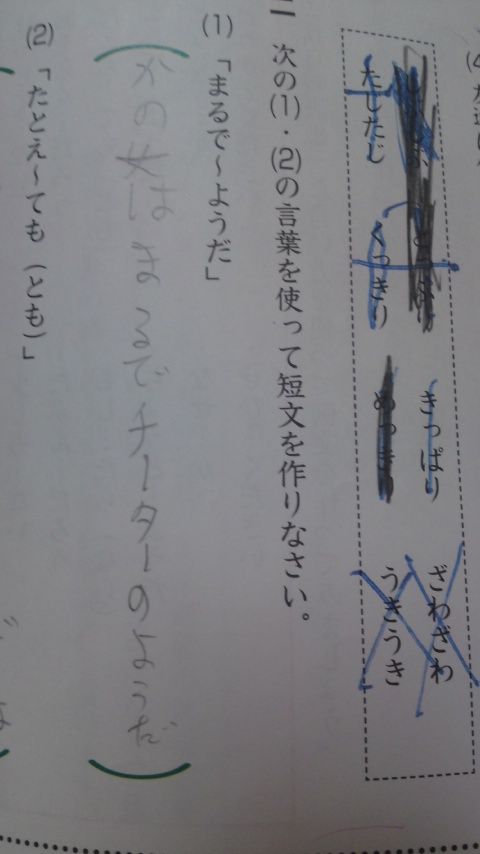 きっぱり ざわざわ
たじたじ くっきり うきうき
二 次の(1)・(2)の言葉を使って短文を作りなさい。
(1)「まるで〜ようだ」
かの女はまるでチーターのようだ
(2)「たとえ〜ても(とも)」